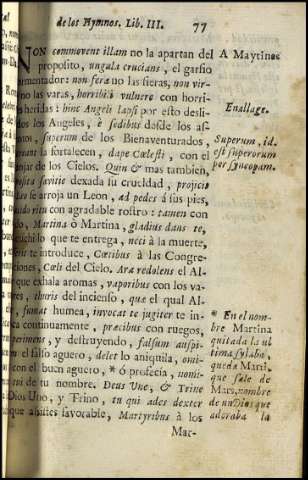 de los Hymnos. Lib. III. 77
NON commovent illam no la apartan del
proposito, ungula crucians, el garfio
tormentador: non feræ no las fieras, non vir-
no las varas, horribi vulnere con horri-
s heridas: hinc Angeli lapsi por esto desli-
dos los Angeles, è sedibus desde los as-
ntos, superum de los Bienaventurados,
la fortalecen, dape Cœlesti, con el
jar de los Cielos. Quin & mas tambien,
posita sævitie dexada su crueldad, projicit
se arroja un Leon, ad pedes à sus pies,
con agradable rostro: tamen con
do, Martina ò Martina, gladius dans te,
uchilo que te entrega, neci à la muerte,
te introduce, Cœtibus à las Congre-
ciones, Cœli del Cielo. Ara redolens el Al-
que exhala aromas, vaporibus con los va-
res, thuris del incienso, que el qual Al-
, fumat humea, invocat te jugiter te in-
ca continuamente, præcibus con ruegos,
y destruyendo, falsum auspi-
m el falso aguero, delet lo aniquila, omi-
con el buen aguero, * ò profecia, nomi-
de tu nombre. Deus Une, & Trine
Dios Uno, y Trino, tu qui ades dexter
que assistes favorable, Martyribus à los
Mar-
A Maytines
Enallage.
Superum, id
est superorum
per syncopam.
* En el nom-
bre Martina
quitada la ul
tima sylaba,
queda Marti,
que sale de
Mars, nombre
de un Dios que
adoraba la